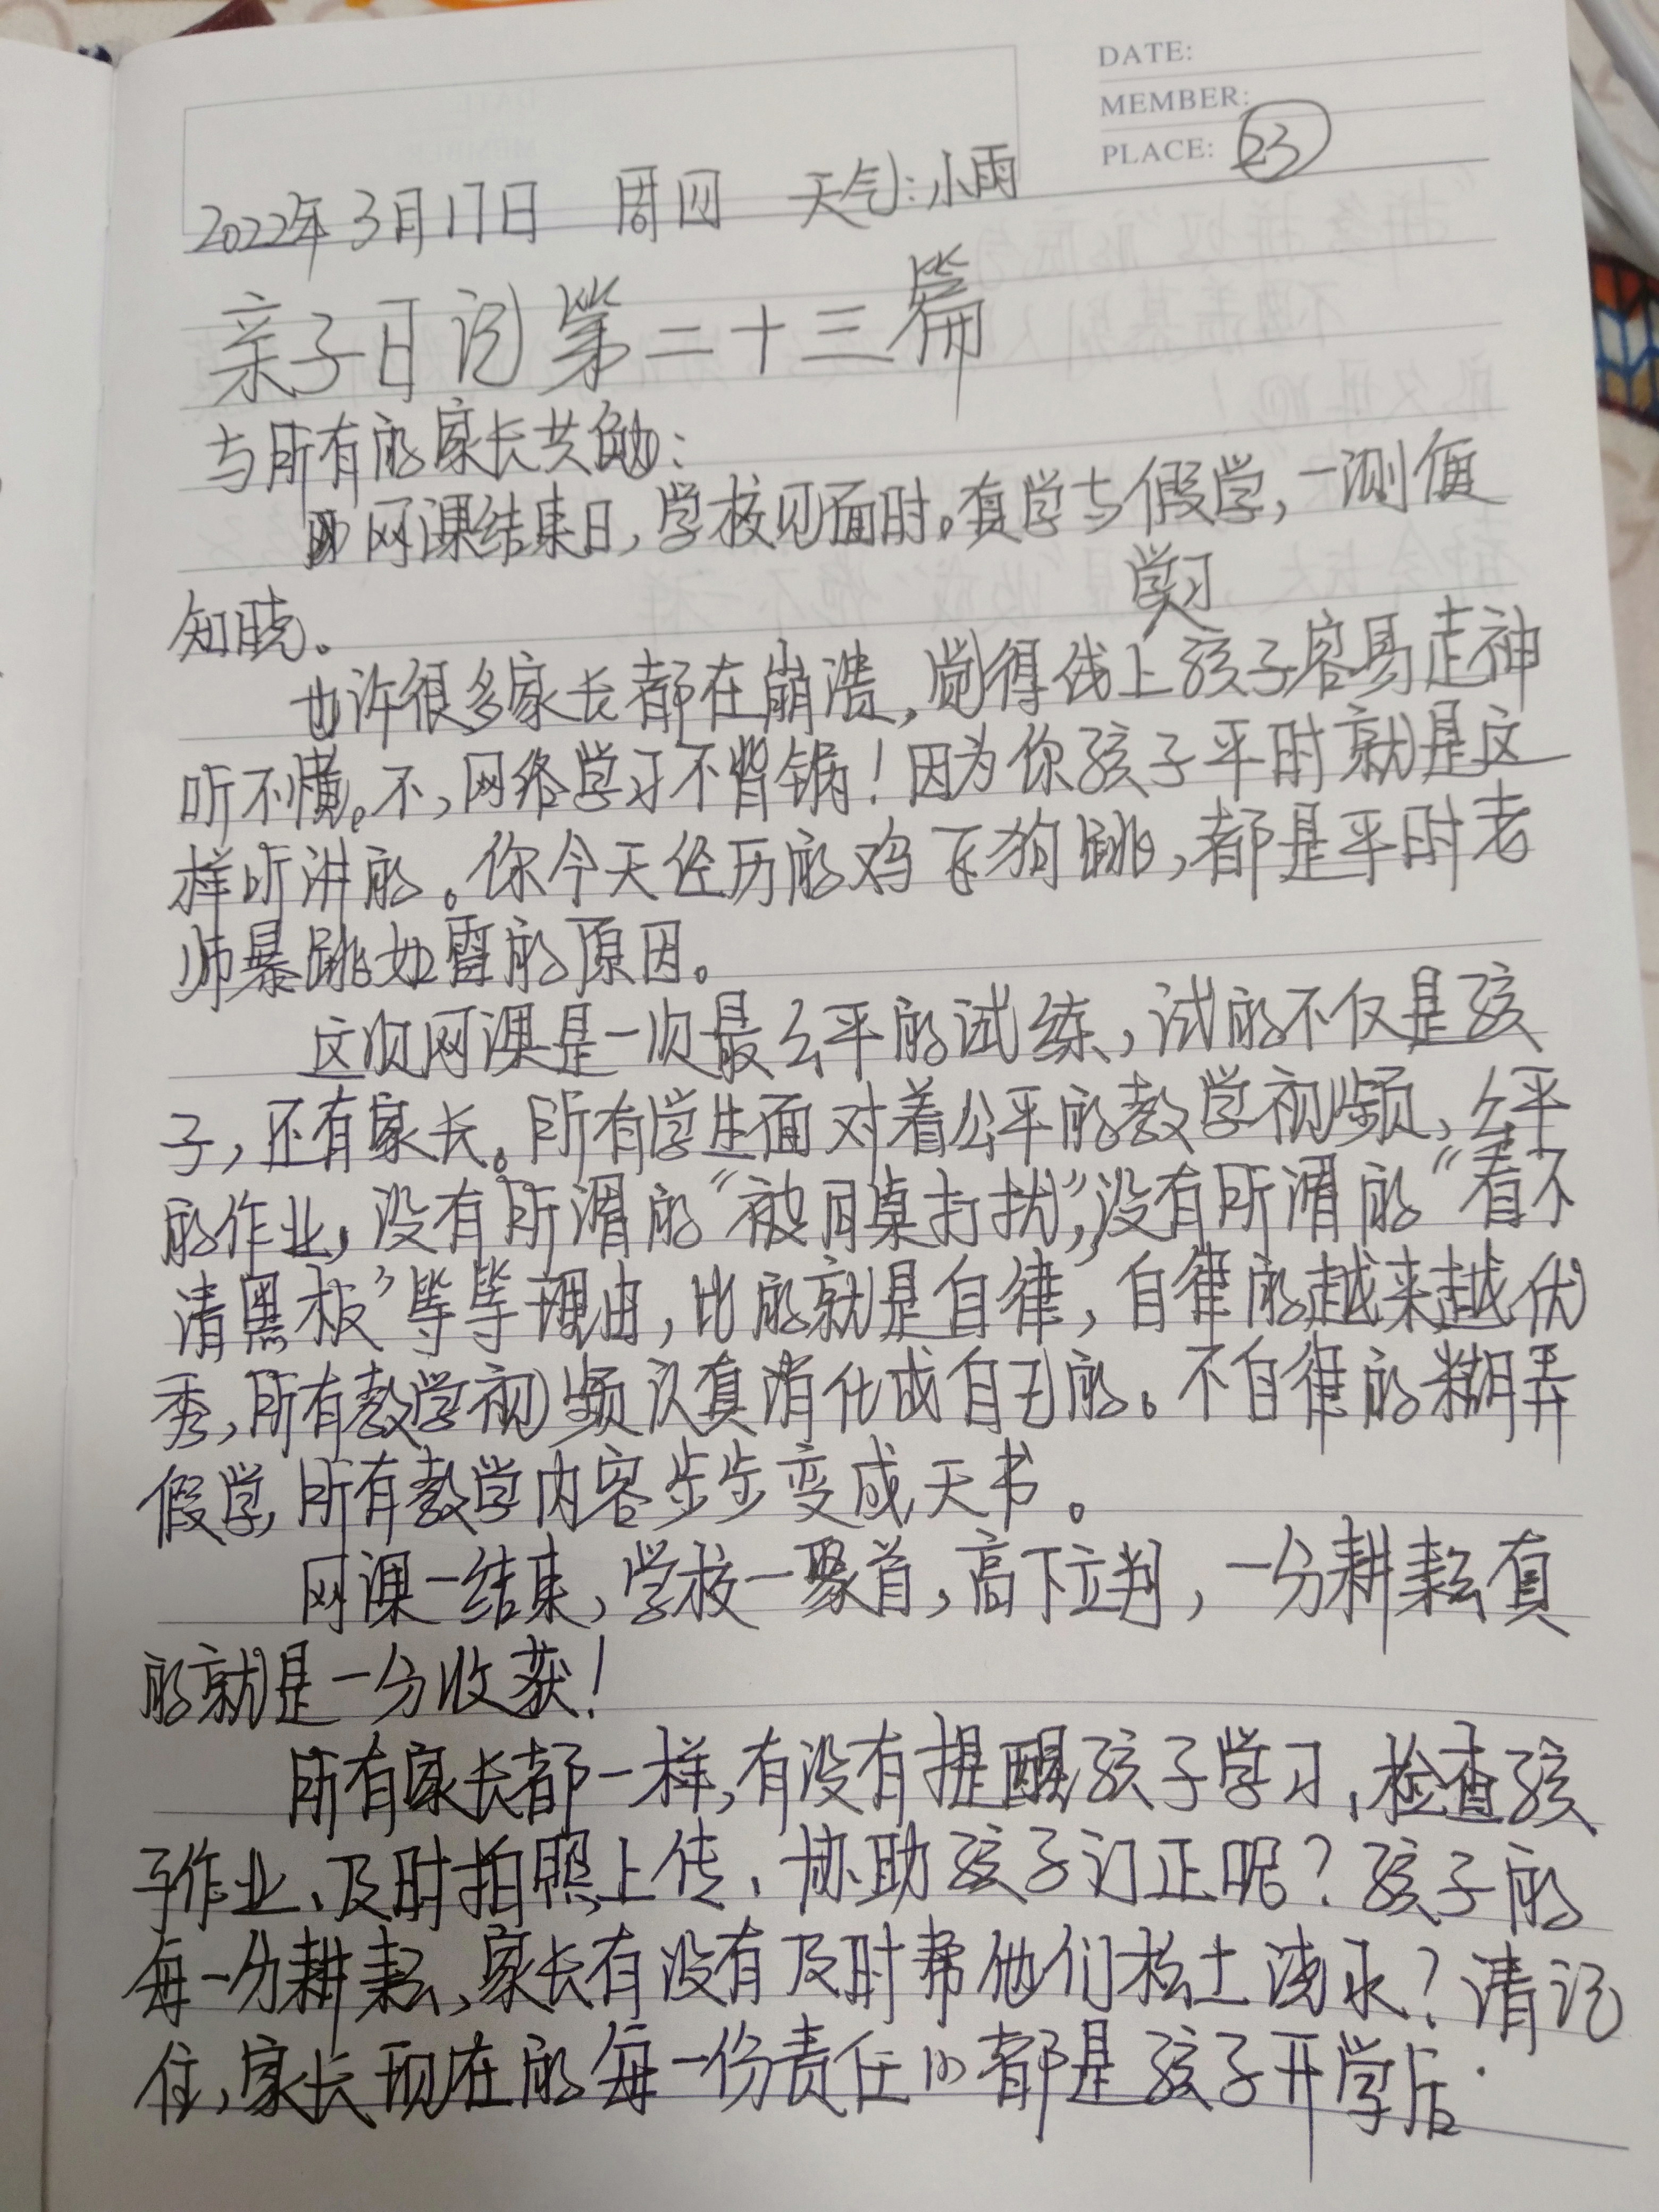 DATE:
MEMBER:
PLACE: 23
2022年3月17日 周四 天气:小雨
亲子日记第二十三篇
与所有的家长共勉:
网课结束日,学校见面时。真学与假学,一测便
知晓。
学习
也许很多家长都在崩溃,觉得线上孩子容易走神
听不懂。不,网络学习不背锅!因为你孩子平时就是这
样听讲的。你今天经历的鸡飞狗跳,都是平时老
师暴跳如雷的原因。
这次网课是一次最公平的试练,试的不仅是孩
子,还有家长。所有学生面对着公平的教学视频、公平
的作业,没有所谓的“被同桌打扰”,没有所谓的“看不
清黑板”等等理由,比的就是自律,自律的越来越优
秀,所有教学视频认真消化成自己的。不自律的糊弄
假学,所有教学内容步步变成天书。
网课一结束,学校一聚首,高下立判,一分耕耘真
的就是一分收获!
所有家长都一样,有没有提醒孩子学习、检查孩
子作业、及时拍照上传、协助孩子订正呢?孩子的
每一分耕耘,家长有没有及时帮他们松土浇水?请记
住,家长现在的每一份责任心都是孩子开学后